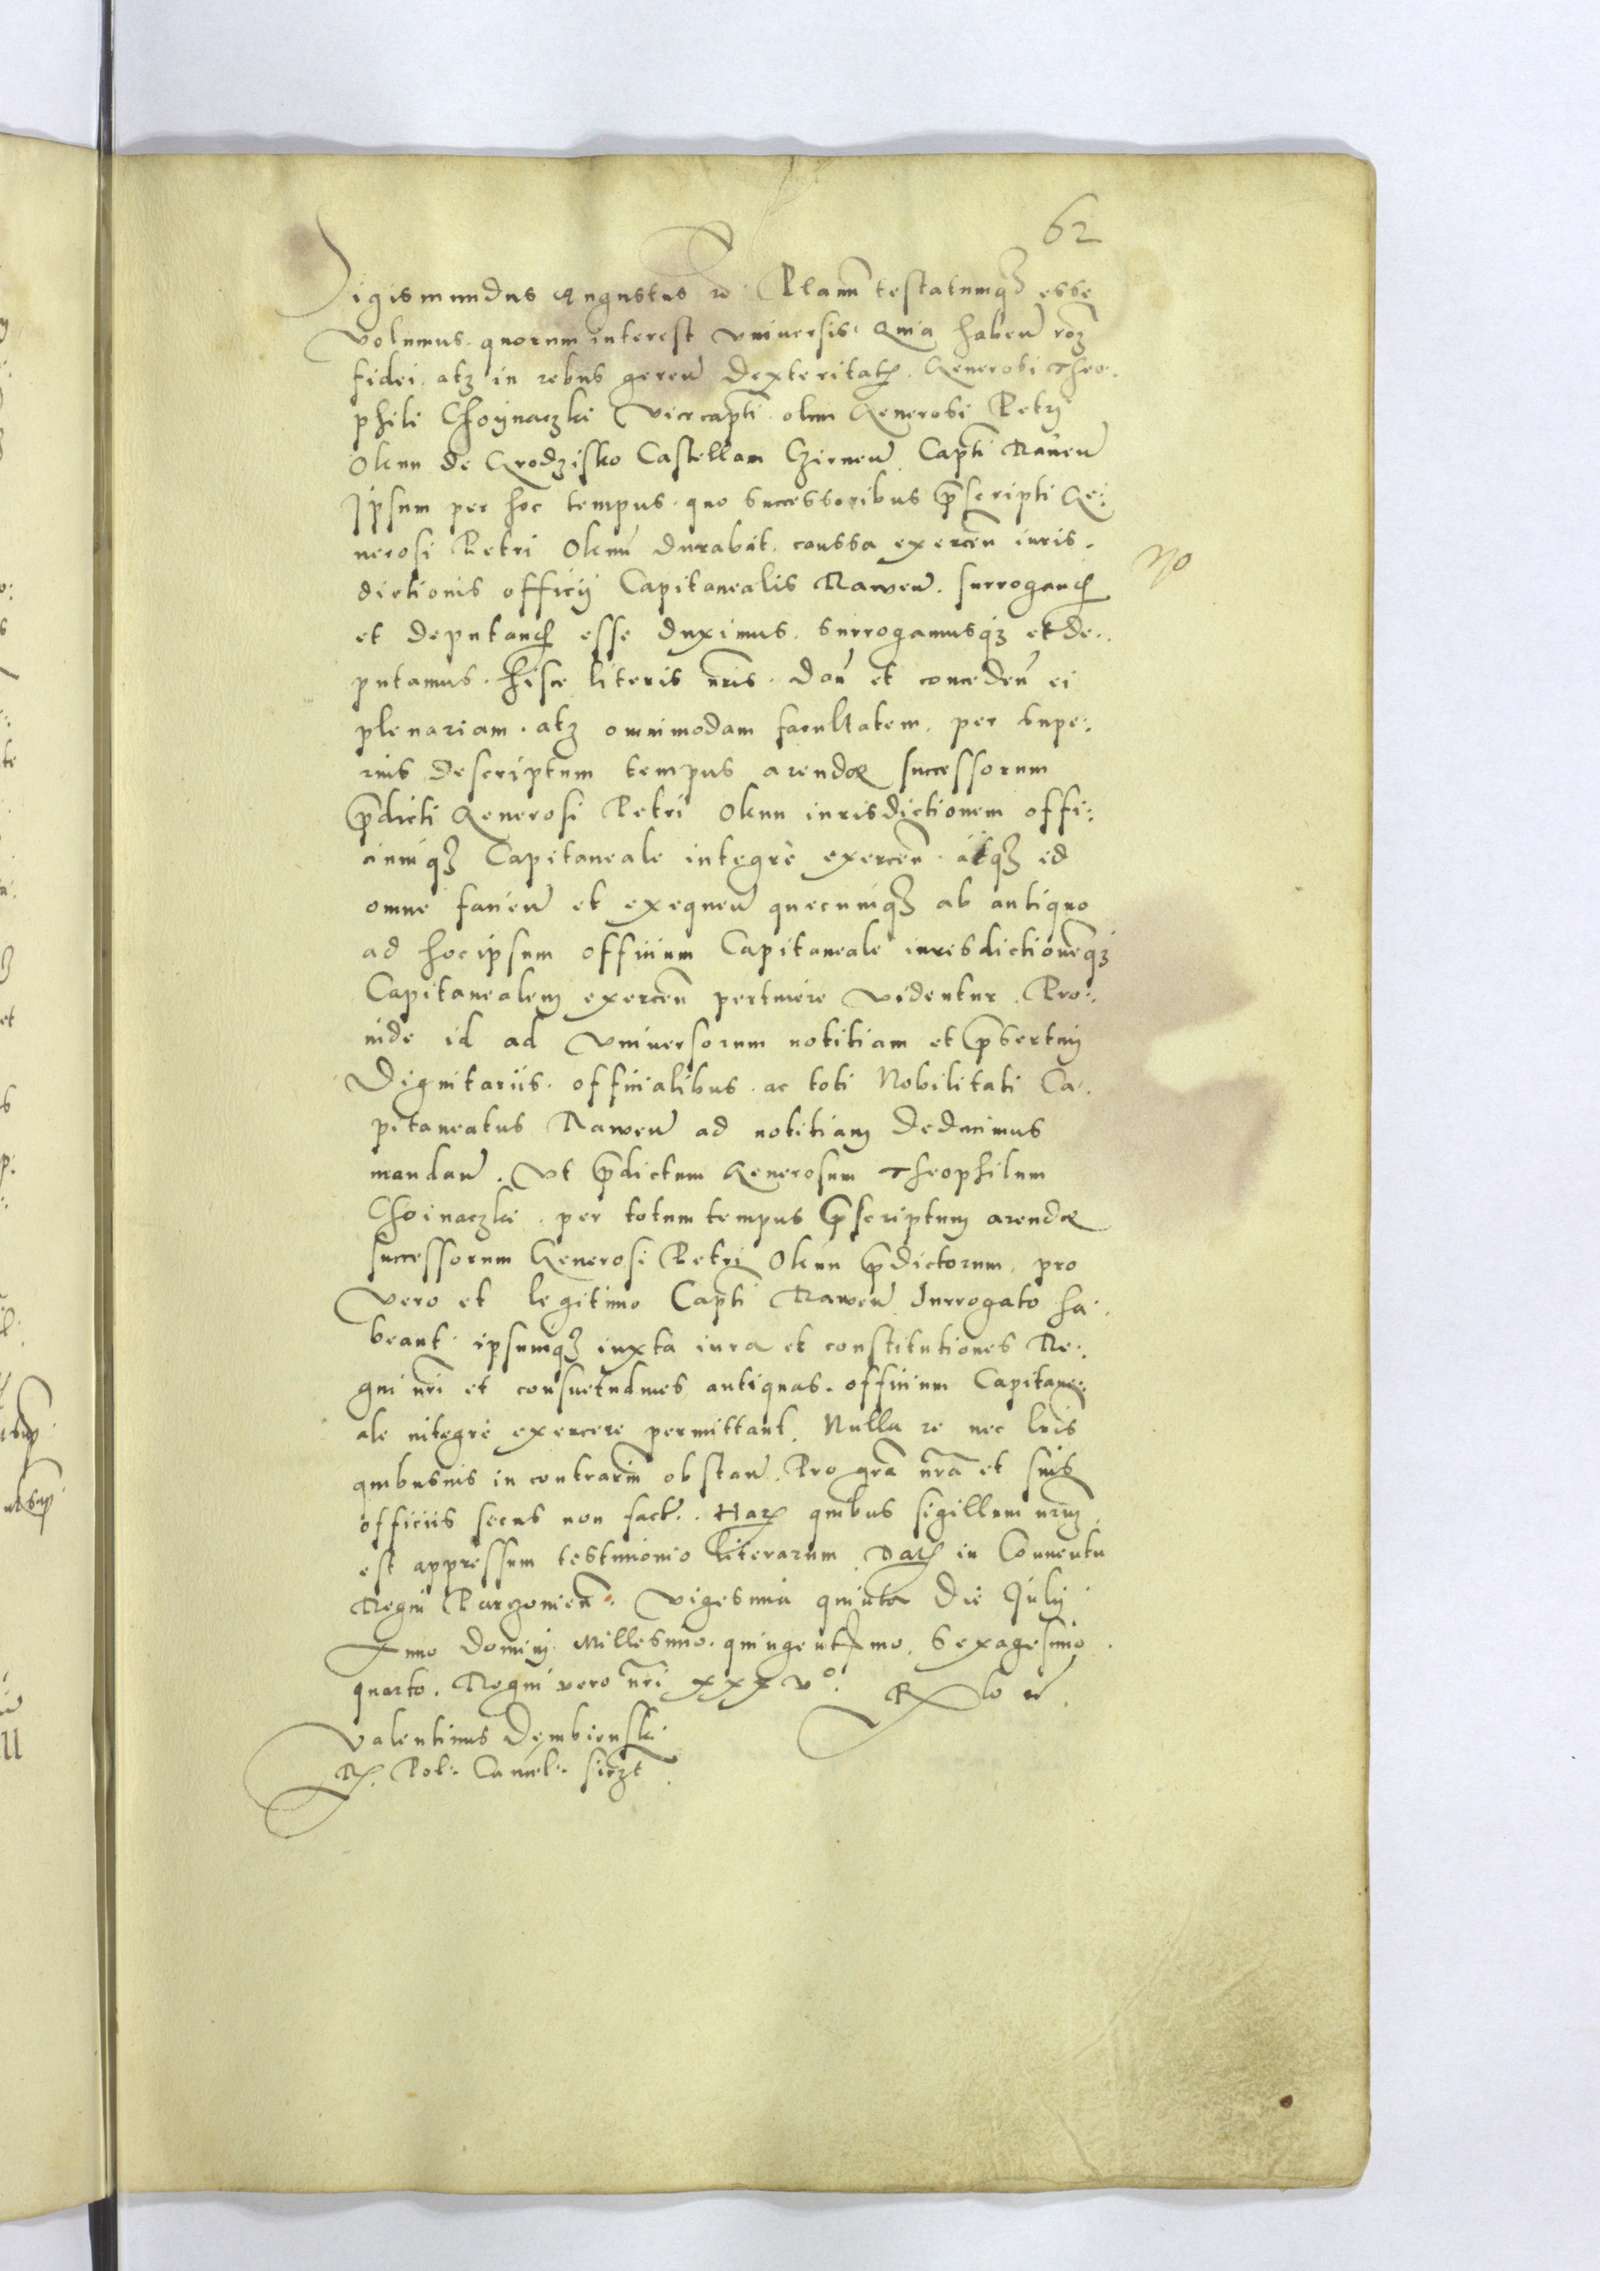 62
Sigismundus Augustus etc Planu testatumqȝ esse
volumus quorum interest universis. Quia haben rōȝ
fidei. atqȝ in rebus geren dexteritatis. Generosi Theo-
phili Choynaczki Vicecapti olim Generosi Petri
Okun de Grodzisko Castellani Czirnen Capti Raven
Ipsum per hoc tempus quo successoribus p̄scripti Ge-
nerosi Petri Okun durabit. coussa exercen iuris-
dictionis officij Capitanealis Rawen. surrogand
et deputand esse duximus. surrogamusqȝ et de-
putamus. hisce literis nr̄is. dan et conceden ei
plenariam. atqȝ omnimodam facultatem. per supe-
rius descriptum tempus arendæ successorum
p̄dicti Generosi Petri Okun iurisdictionem offi-
ciumqȝ Capitaneale integrè exercen. atqȝ ed
omne facien et exequen quecumqȝ ab antiquo
ad hoc ipsum officium Capitaneale iurisdictionēqȝ
Capitanealem exercen pertinere videntur. Pro-
inde id ad universorum notitiam et p̄sertim
Dignitariis. officialibus. ac toti Nobilitati Ca-
pitaneatus Rawen ad notitiam deducimus
mandan. Ut p̄dictum Generosum Theophilum
Choinaczki. per totum tempus p̄scriptum arendæ
successorum Generosi Petri Okun p̄dictorum. pro
vero et legitimo Capti Rawen Surrogato ha-
beant. ipsumqȝ iuxta iura et constitutiones Re-
gni nr̄i et consuetudines antiquas. officium Capitane-
ale integrè exercere permittant. Nulla re nec lr̄is
quibusvis in contrariū obstan. Pro grā nr̄a et suis
officiis secus non fact. Harȝ quibus sigillum nr̄um
est appressum testimonio literarum. Datȝ in Conventu
Regni Parczoviēn. Vigesima quinta Die Julij
Anno Domini Millesimo. quingentesimo. Sexagesimo
quarto. Regni vero nr̄i xxxvº.
Valentinus Dembienski
R. Pol. Cancel. sszt